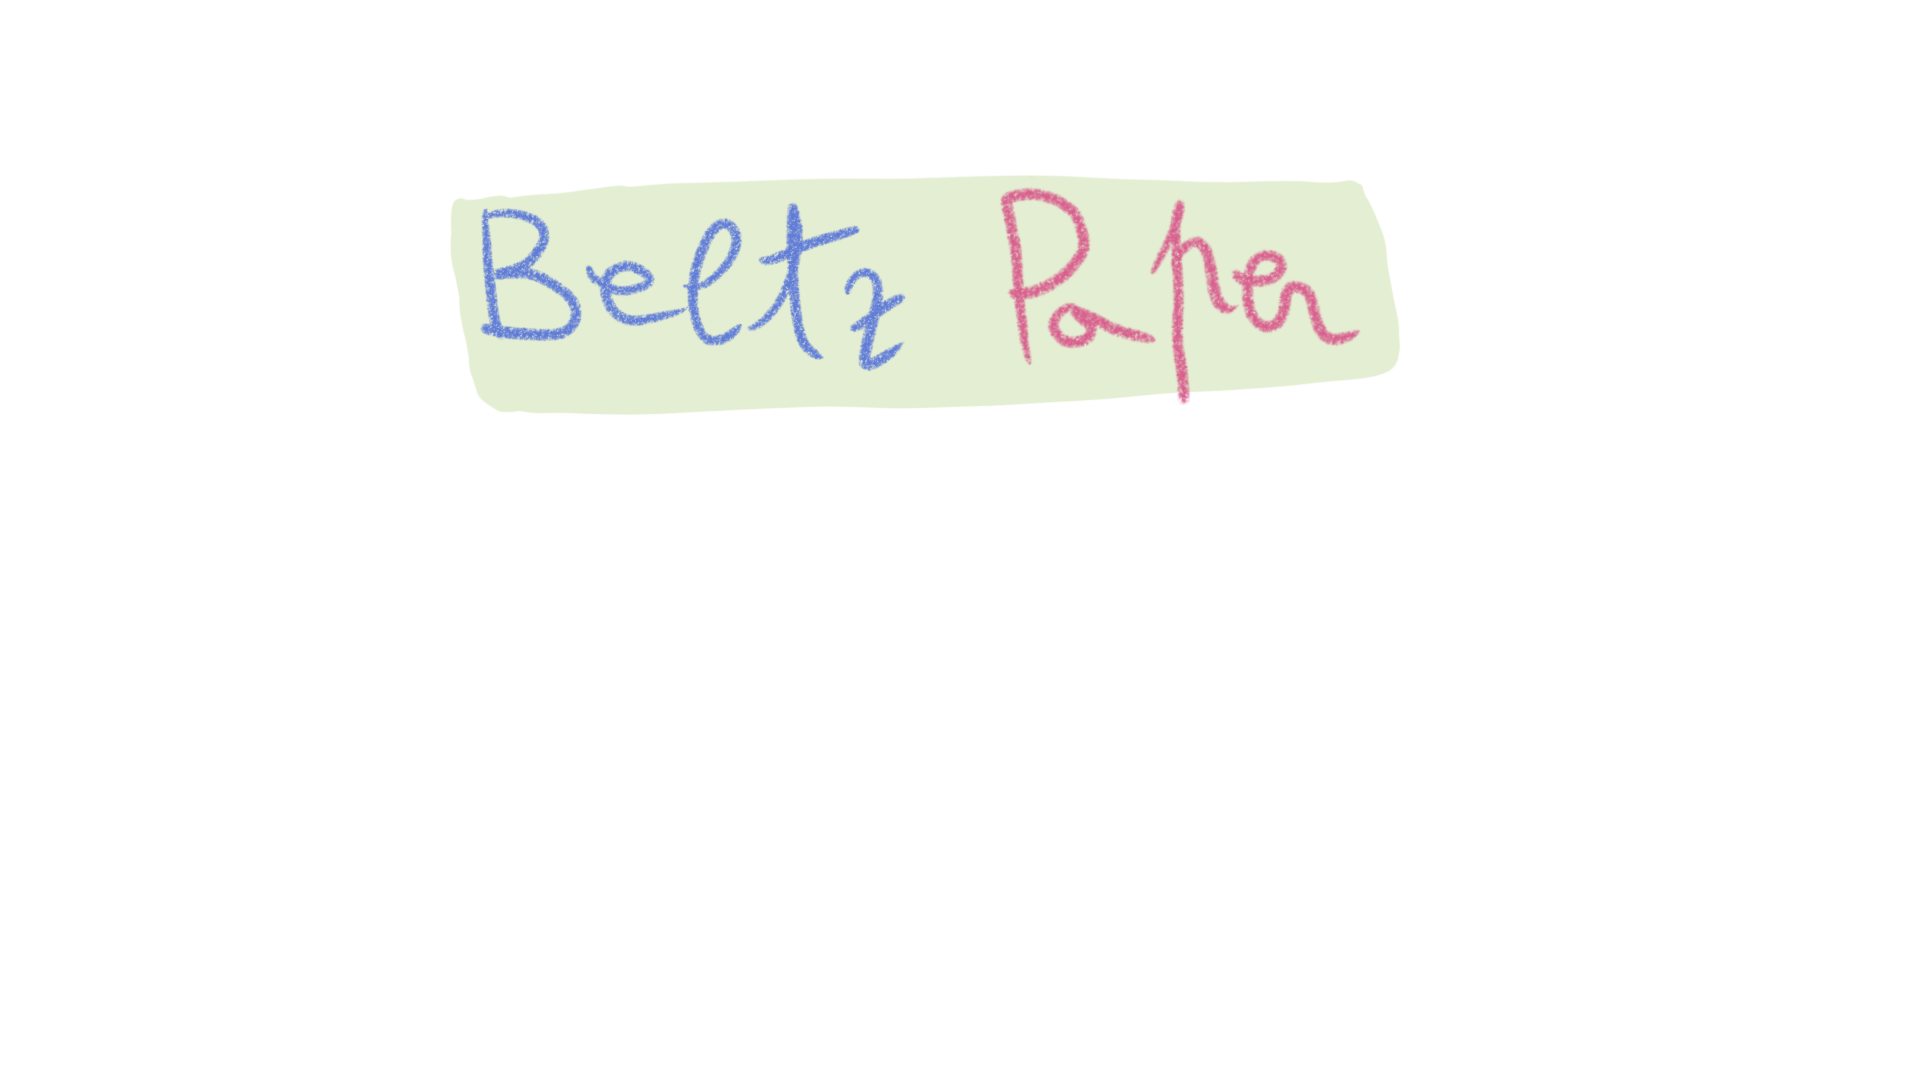 Beltz Paper